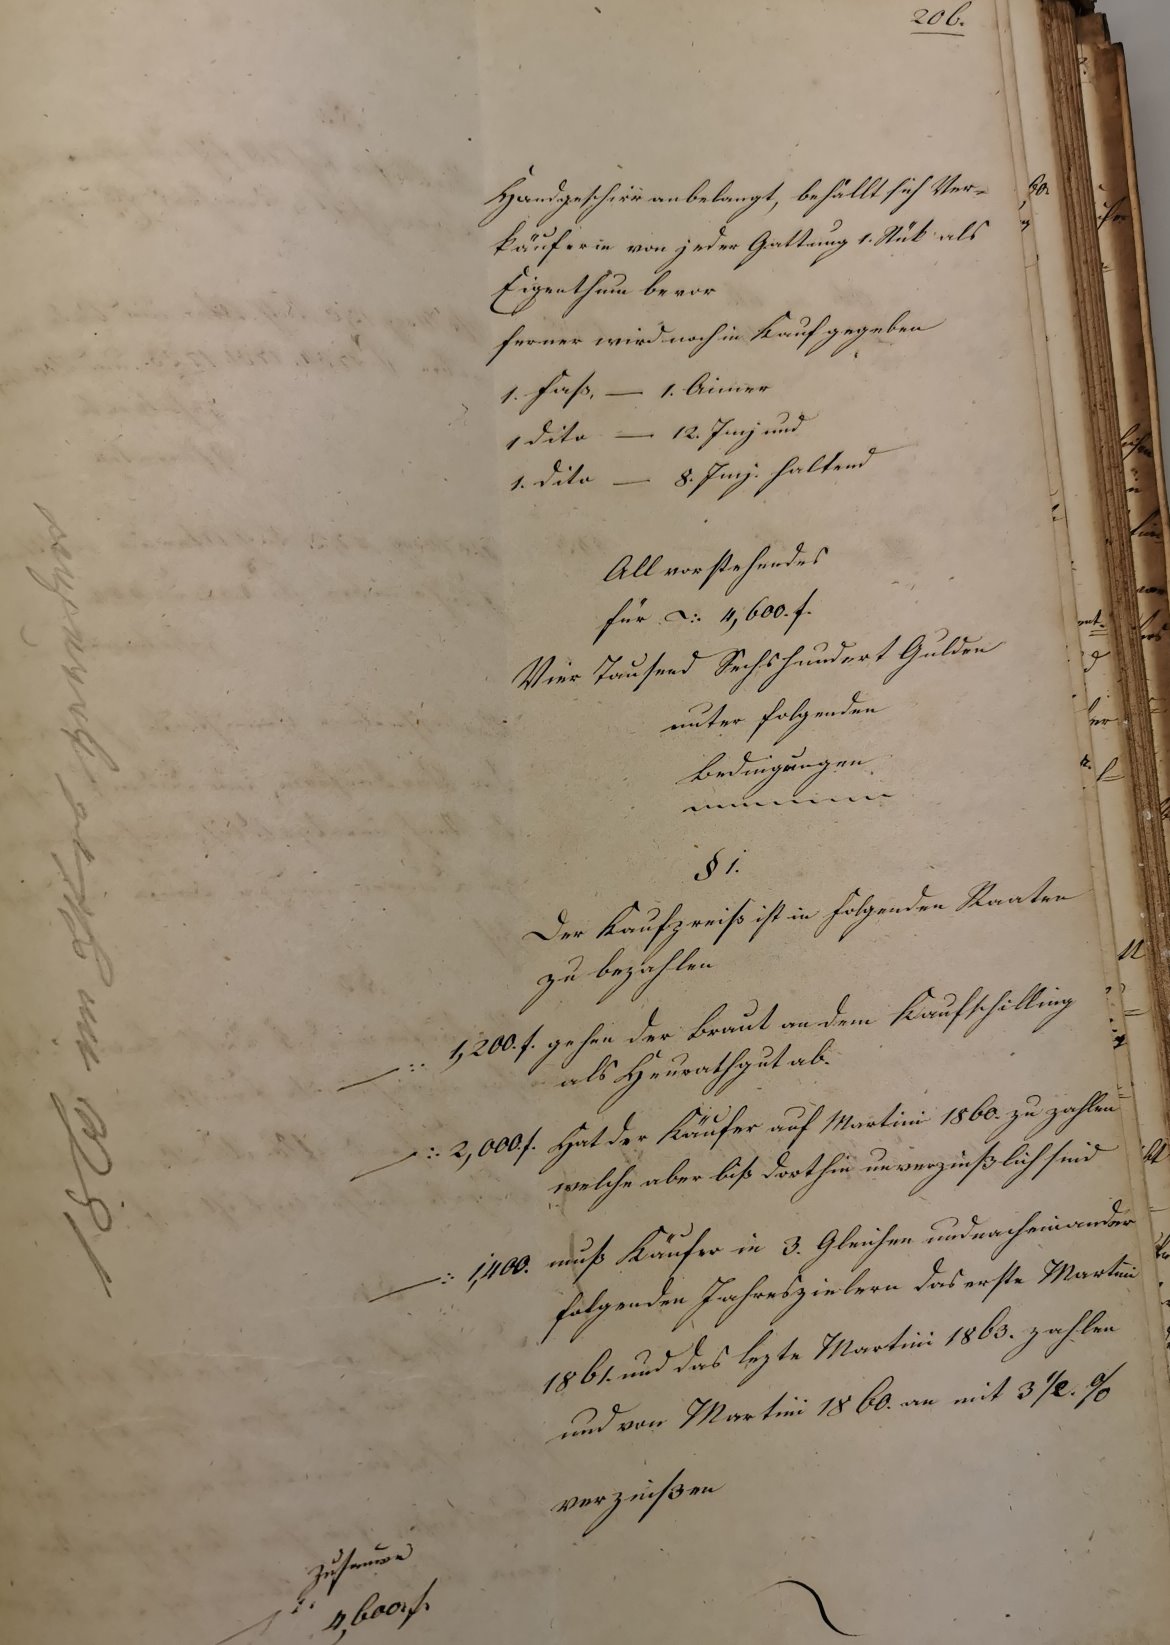 206.
Handgeschirr anbelangt, behällt sich Ver-
käuferin von jeder Gattung 1. Stük als
Eigenthum bevor
ferner wird noch in Kauf gegeben
1. Faß, — 1. Aimer
1 dito — 12. Imj und
1. dito — 8. Imj. haltend
All vorstehendes
für 4,600. f.
Vier Tausend Sechshundert Gulden
unter folgenden
Bedingungen
§ 1.
Der Kaufpreiß ist in folgenden Raaten
zu bezahlen
1,200. f. gehen der Braut an dem Kaufschilling
als Heurathgut ab.
2,000. f. Hat der Käufer auf Martini 1860. zu zahlen
welche aber biß dorthin unverzinßlich sind
1,400. muß Käufer in 3. Gleichen und nacheinander
folgenden Jahreszielern das erste Martini
1861. und das lezte Martini 1863. zahlen
und von Martini 1860. an mit 3 1/2. %
verzinßen
zusamme
4,600. f.